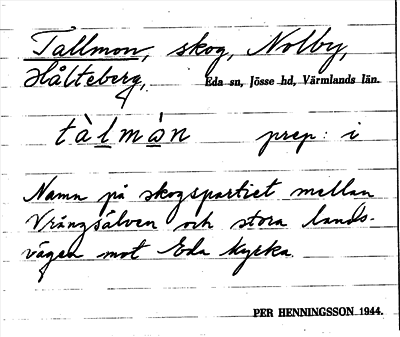 Tallmon, skog, Nolby,
Hålteberg, Eda sn, Jösse hd, Värmlands län.
tàlmán prep: i
Namn på skogspartiet mellan
Vrångsälven och stora lands-
vägen mot Eda kyrka.
PER HENNINGSSON 1944.